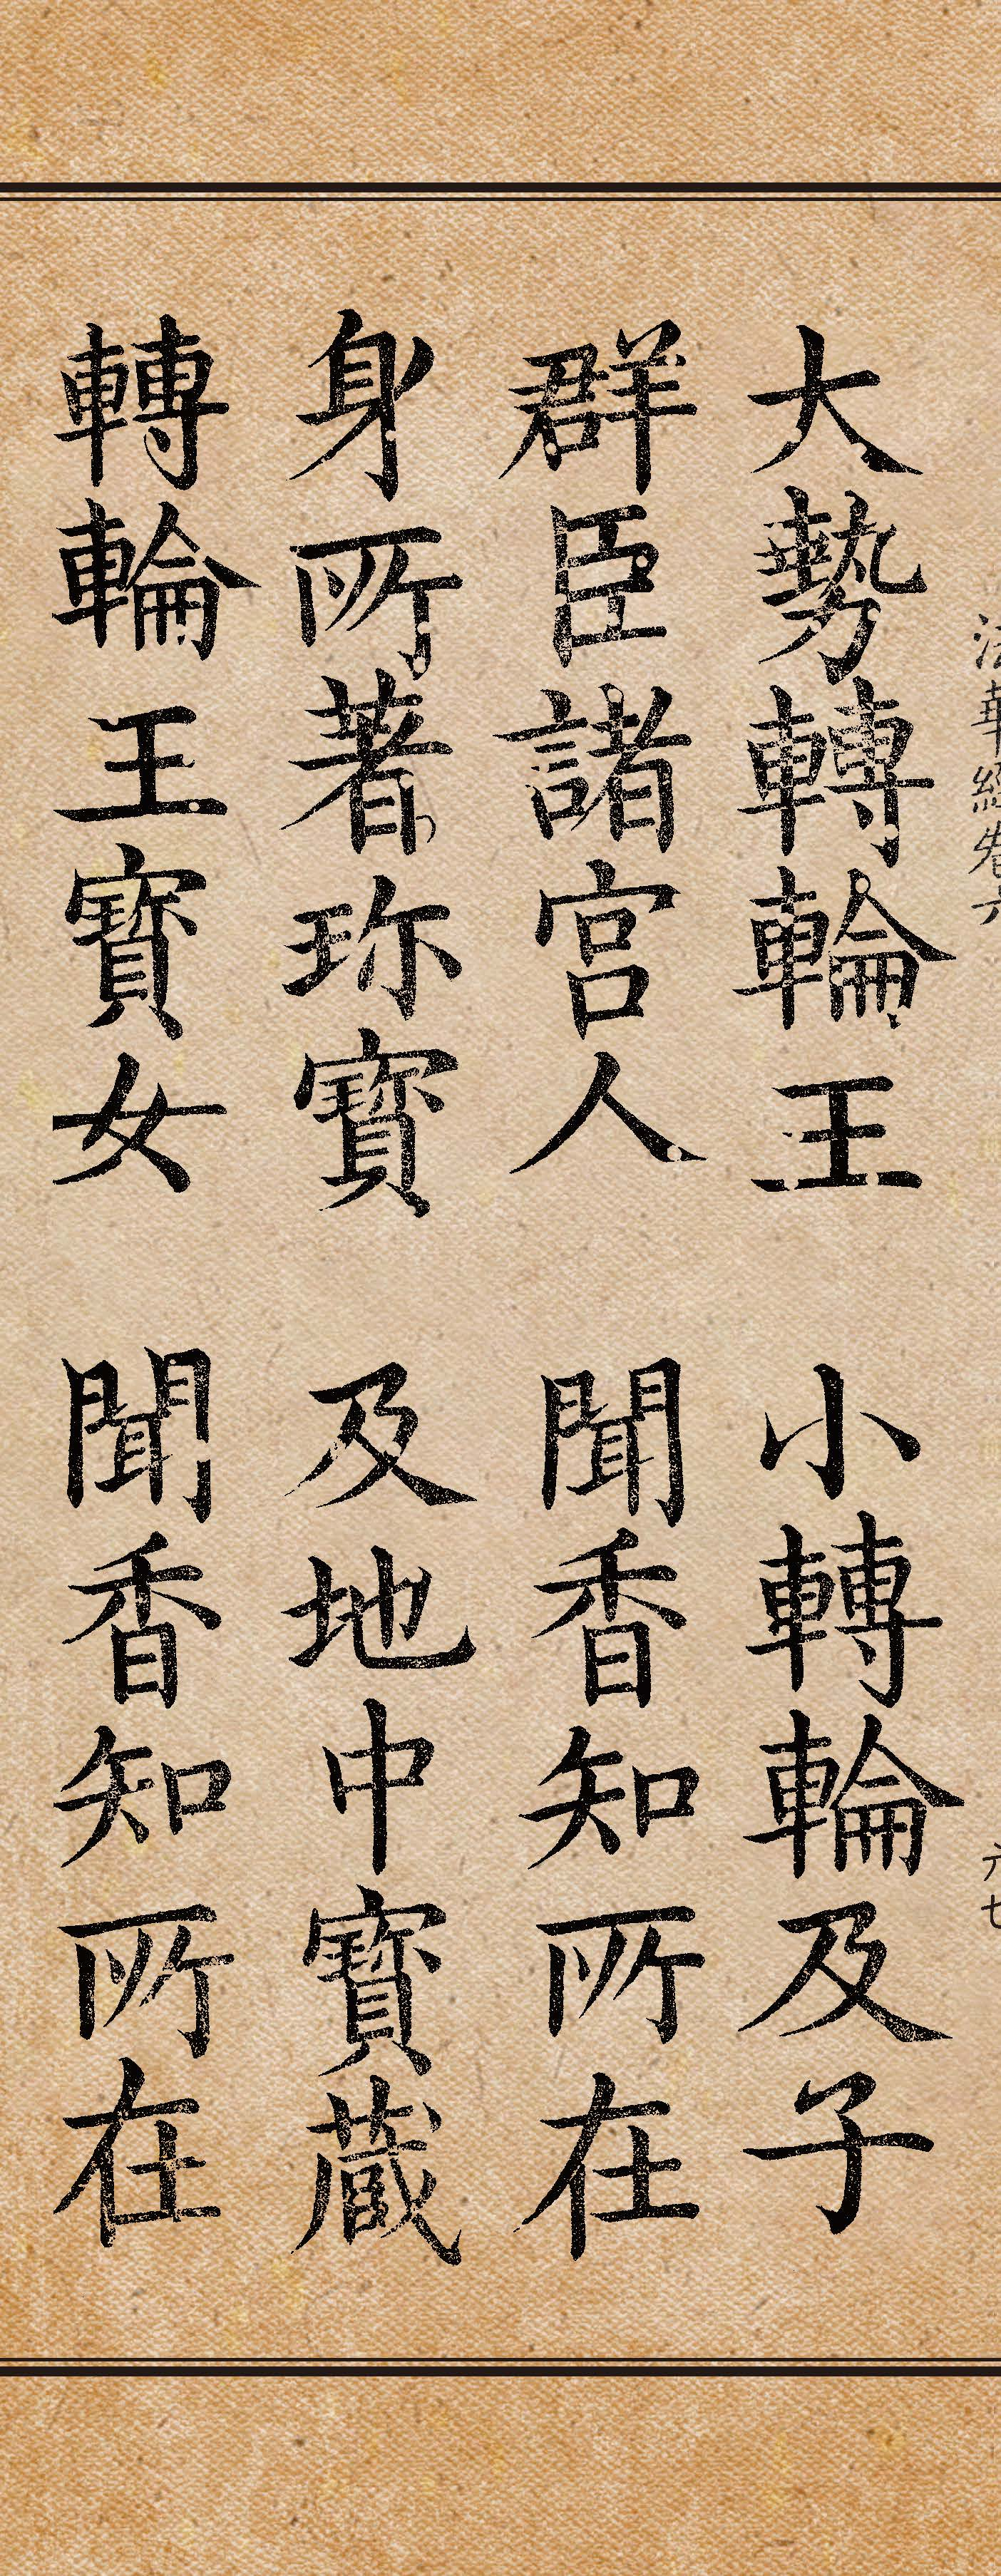 法華經卷六
六七
大勢轉輪王 小轉輪及子
群臣諸宮人 聞香知所在
身所著珎寶 及地中寶藏
轉輪王寶女 聞香知所在